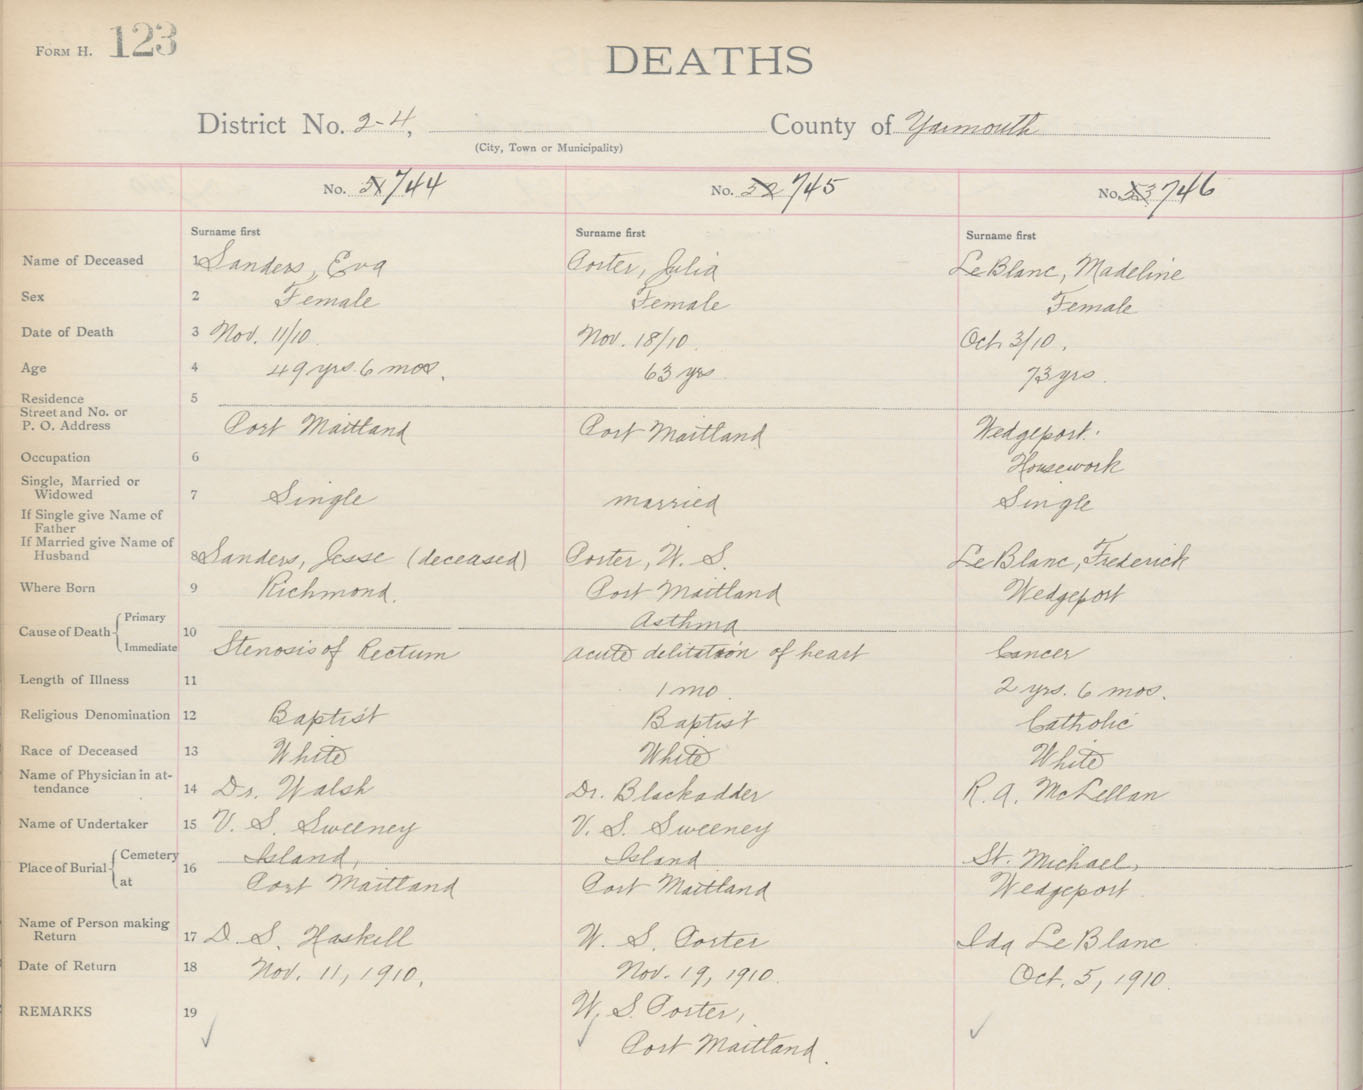 FORM H. 123
DEATHS
District No. 2-4, County of Yarmouth
(City, Town or Municipality)
No. 51 744 No. 52 745 No. 53 746
Surname first Surname first Surname first
Name of Deceased 1 Sanders, Eva Porter, Julia LeBlanc, Madeline
Sex 2 Female Female Female
Date of Death 3 Nov. 11/10. Nov. 18/10. Oct. 3/10.
Age 4 49 yrs. 6 mos. 63 yrs 73 yrs.
Residence 5
Street and No. or
P. O. Address Port Maitland Port Maitland Wedgeport.
Occupation 6 Housework
Single, Married or
Widowed 7 Single married Single
If Single give Name of
Father
If Married give Name of
Husband 8 Sanders, Jesse (deceased) Porter, W. S. LeBlanc, Frederick
Where Born 9 Richmond. Port Maitland Wedgeport
Cause of Death Primary 10 Asthma
Immediate Stenosis of Rectum acute delitation of heart Cancer
Length of Illness 11 1 mo. 2 yrs. 6 mos.
Religious Denomination 12 Baptist Baptist Catholic
Race of Deceased 13 White White White
Name of Physician in at-
tendance 14 Dr. Walsh Dr. Blackadder R. A. McLellan
Name of Undertaker 15 V. S. Sweeney V. S. Sweeney
Place of Burial Cemetery 16 Island, Island St. Michael,
at Port Maitland Port Maitland Wedgeport
Name of Person making
Return 17 D. S. Haskell W. S. Porter Ida LeBlanc
Date of Return 18 Nov. 11, 1910. Nov. 19, 1910. Oct. 5, 1910.
REMARKS 19 W. S. Porter,
Port Maitland.